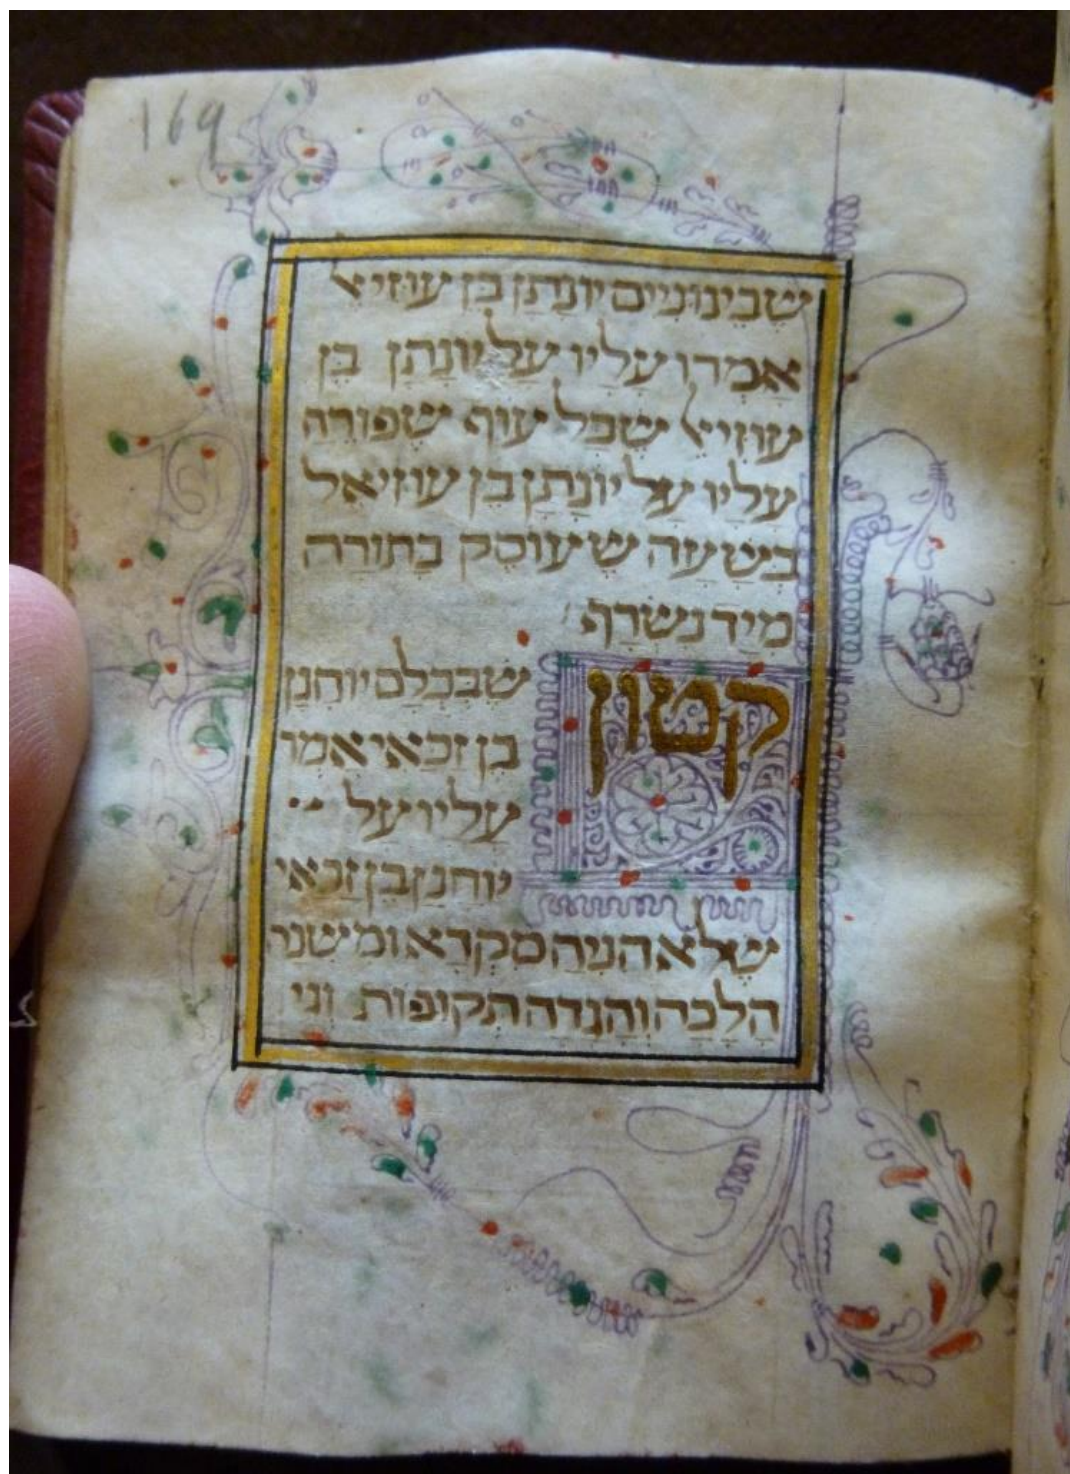 169
שבינוניים יונתן בן עוזיאל
אמרו עליו על יונתן בן
עוזיאל שכל עוף שפורח
עליו על יונתן בן עוזיאל
בשעה שעוסק בתורה
מיד נשרף
קטון שבכלם יוחנן
בן זכאי אמר
עליו על
יוחנן בן זכאי
שלא הניח מקרא ומשנה
הלכה והגדה תקופות וגי